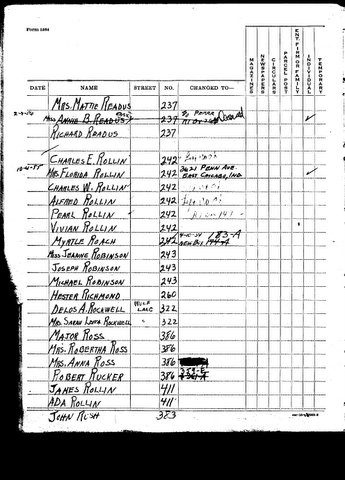 Form 1564
MAGAZINES
NEWSPAPERS
CIRCULARS
PARCEL POST
ENT. FIRM OR FAMILY
INDIVIDUAL
TEMPORARY
DATE NAME STREET NO. CHANGED TO—
MRS. MATTIE READUS 237
MISS ANNIE B. READUS 237
RICHARD READUS 237
CHARLES E. ROLLIN 242
MRS. FLORIDA ROLLIN 242 3621 PENN AVE. EAST CHICAGO, IND. ✓
CHARLES W. ROLLIN 242
ALFRED ROLLIN 242
PEARL ROLLIN 242
VIVIAN ROLLIN 242
MYRTLE ROACH 242 183-A
MISS JEANNE ROBINSON 243
JOSEPH ROBINSON 243
MICHAEL ROBINSON 243
HESTER RICHMOND 260
DELOS A. ROCKWELL WOLF LAKE 322
MRS. SARAH LOVEA ROCKWELL " 322
MAJOR ROSS 386
MRS. ROBERTHA ROSS 386
MRS. ANNA ROSS 386
ROBERT RUCKER 386 359-E
JAMES ROLLIN 411
ADA ROLLIN 411
JOHN RUSH 383